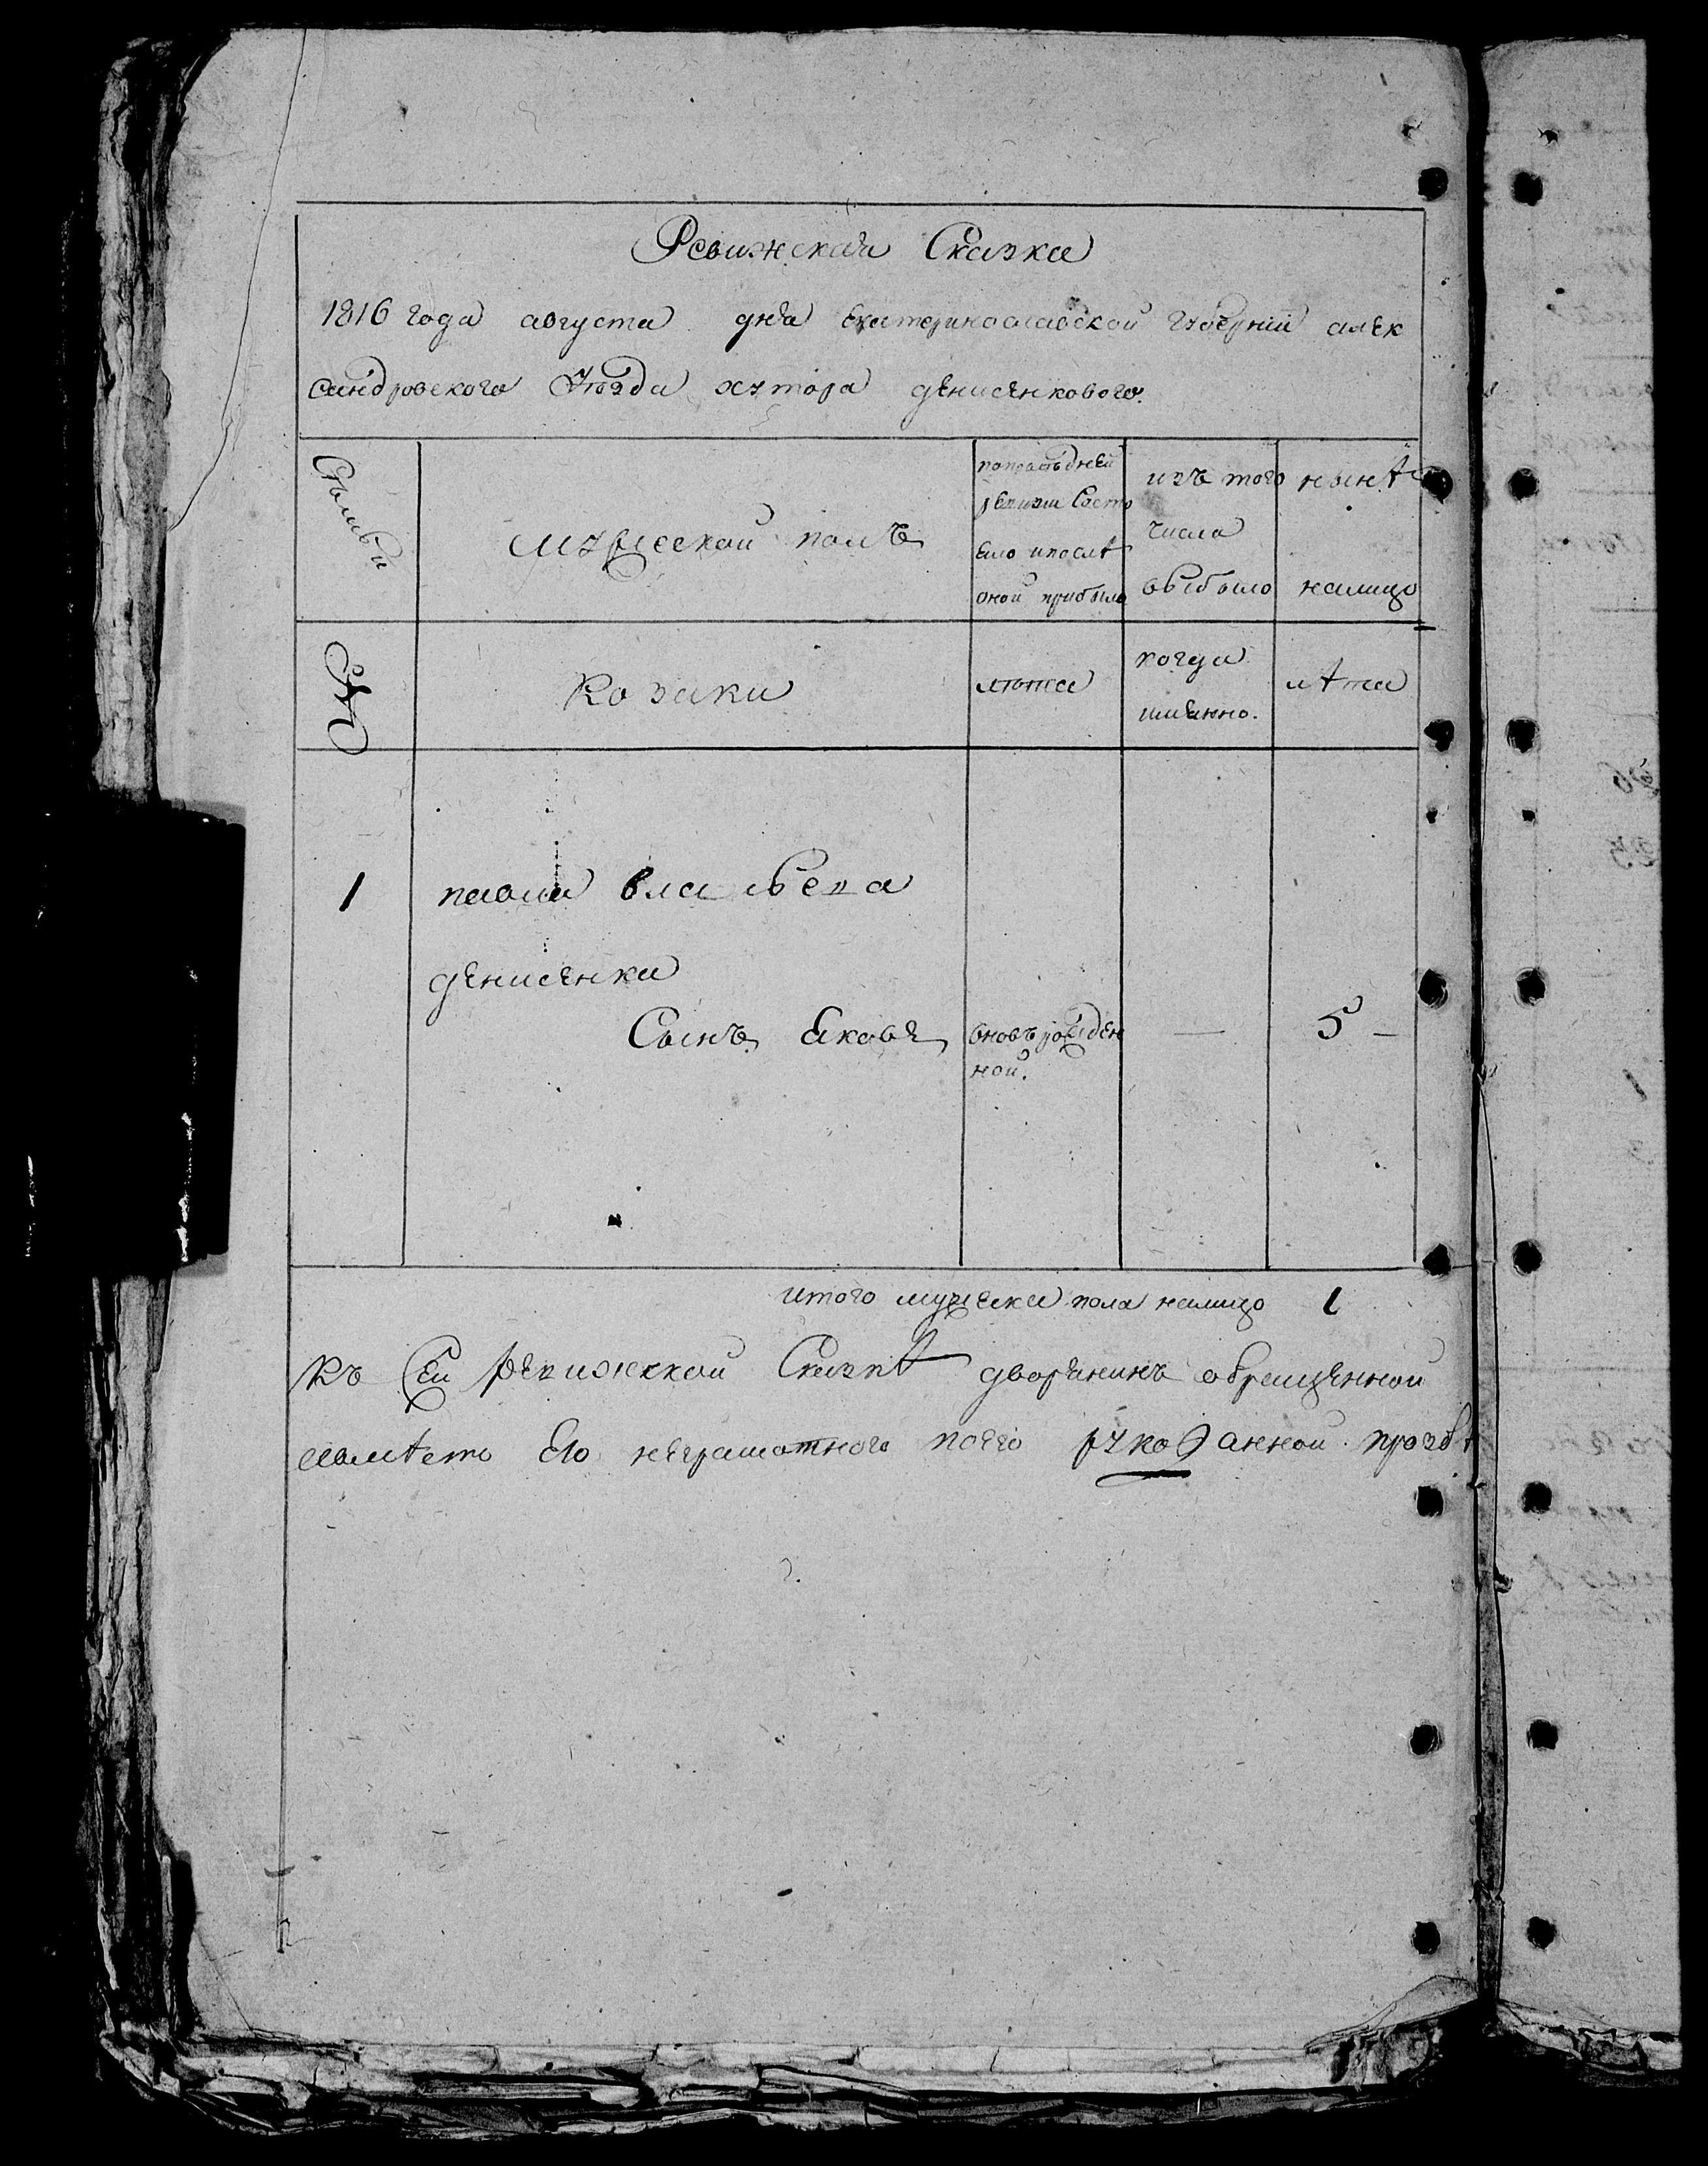 Ревижская Сказка
1816 года августа дня Екатеринославской Губернїи алек
сандровского Уѣзда хутора денисенкового.
Семьи
мужеской полъ
попослѣдней
ревизии Состо
яло ипослѣ
оной прибыло
изъ того
числа
выбыло
нынѣ
налицо
№
Козаки
лѣта
когда
именно.
лѣта
1
павла
денисенка
Сынъ Яковъ
вновьрожден
ной.
—
5 –
итого мужеска пола налицо 1
Къ Сей ревижской Сказкѣ дворянинъ
вмѣсто Его неграмотного поего рукоданной